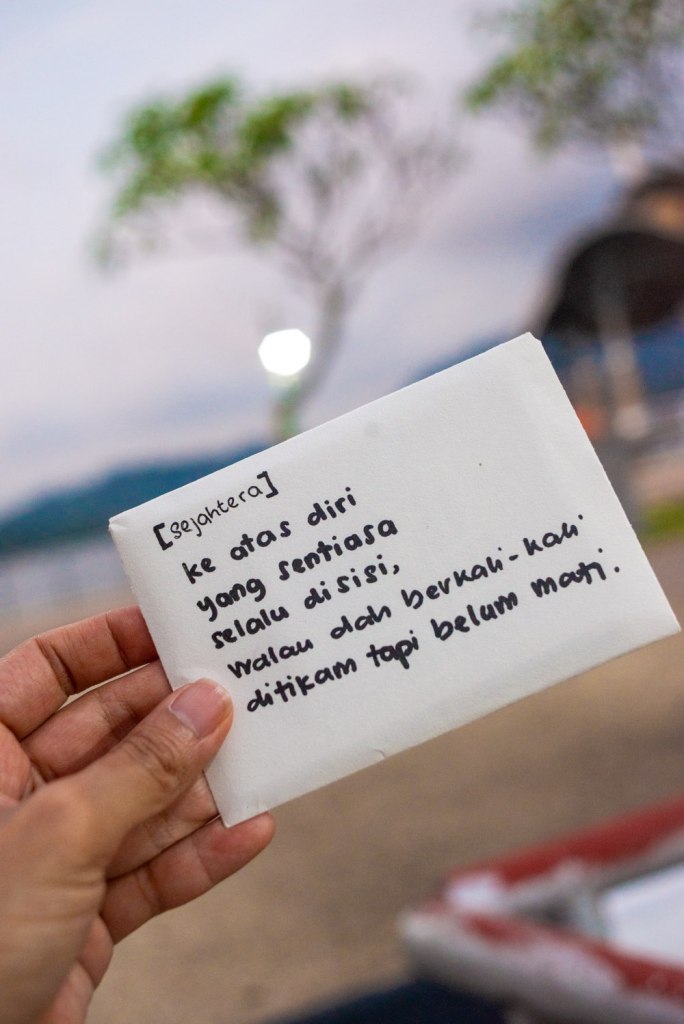 [sejahtera]
ke atas diri
yang sentiasa
selalu disisi,
walau dah berkali-kali
ditikam tapi belum mati.